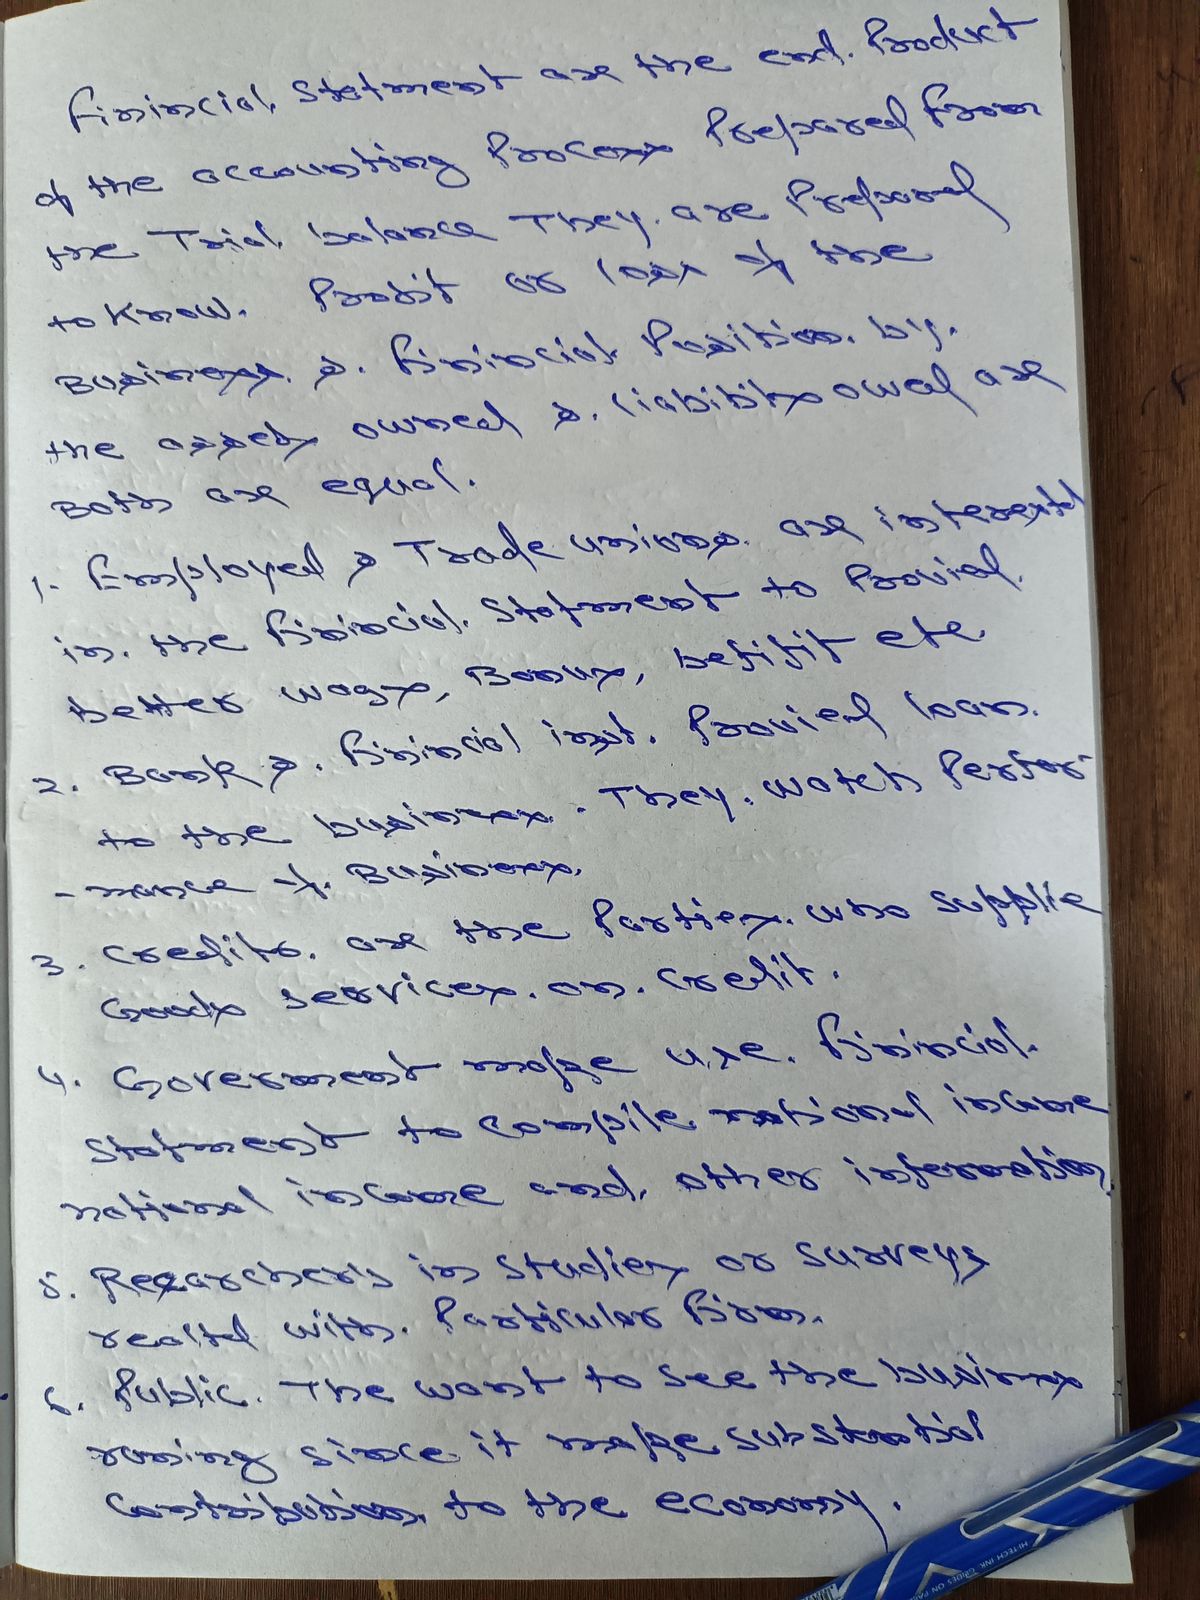 Finincial. Statment are the end. Product
of the accounting Process Prepared from
the Trial. balance They. are Prepared
to Know. Profit or loss of the
Business. &. Finincial. Position. by.
the assets owned &. liabilitys owed are
Both are equal.
1. Employed & Trade unions. are interested
in. the finincial. Statment to Provied.
better wages, Bonus, befifit etc
2. Bank &. Finincial inst. Provied loan.
to the business. They. watch Perfor-
-mance of. Business.
3. Credits. are the Parties. who supplie
Goods services. on. Credit.
4. Government make use. Finincial.
Statment to compile. national income
national income and. other information.
5. Researchers in studies or surveys
realted with. Particular Firm.
6. Public. The want to see the business
runing since it make substantial
Contribution. to the economy.
HI-TECH INK